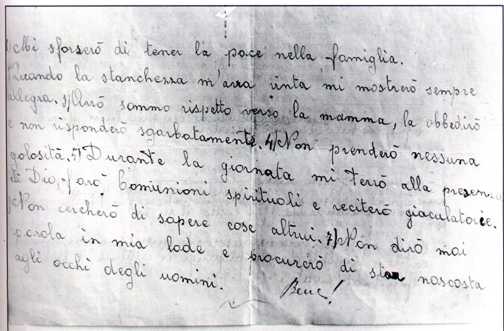 1) Mi sforzerò di tener la pace nella famiglia.
Quando la stanchezza m'avrà vinta mi mostrerò sempre
allegra. 3) Avrò sommo rispetto verso la mamma, la obbedirò
e non risponderò sgarbatamente. 4) Non prenderò nessuna
golosità. 5) Durante la giornata mi terrò alla presenza
di Dio, farò Comunioni spirituali e reciterò giaculatorie.
) Non cercherò di sapere cose altrui. 7) Non dirò mai
parola in mia lode e procurerò di star nascosta
agli occhi degli uomini. Bene!